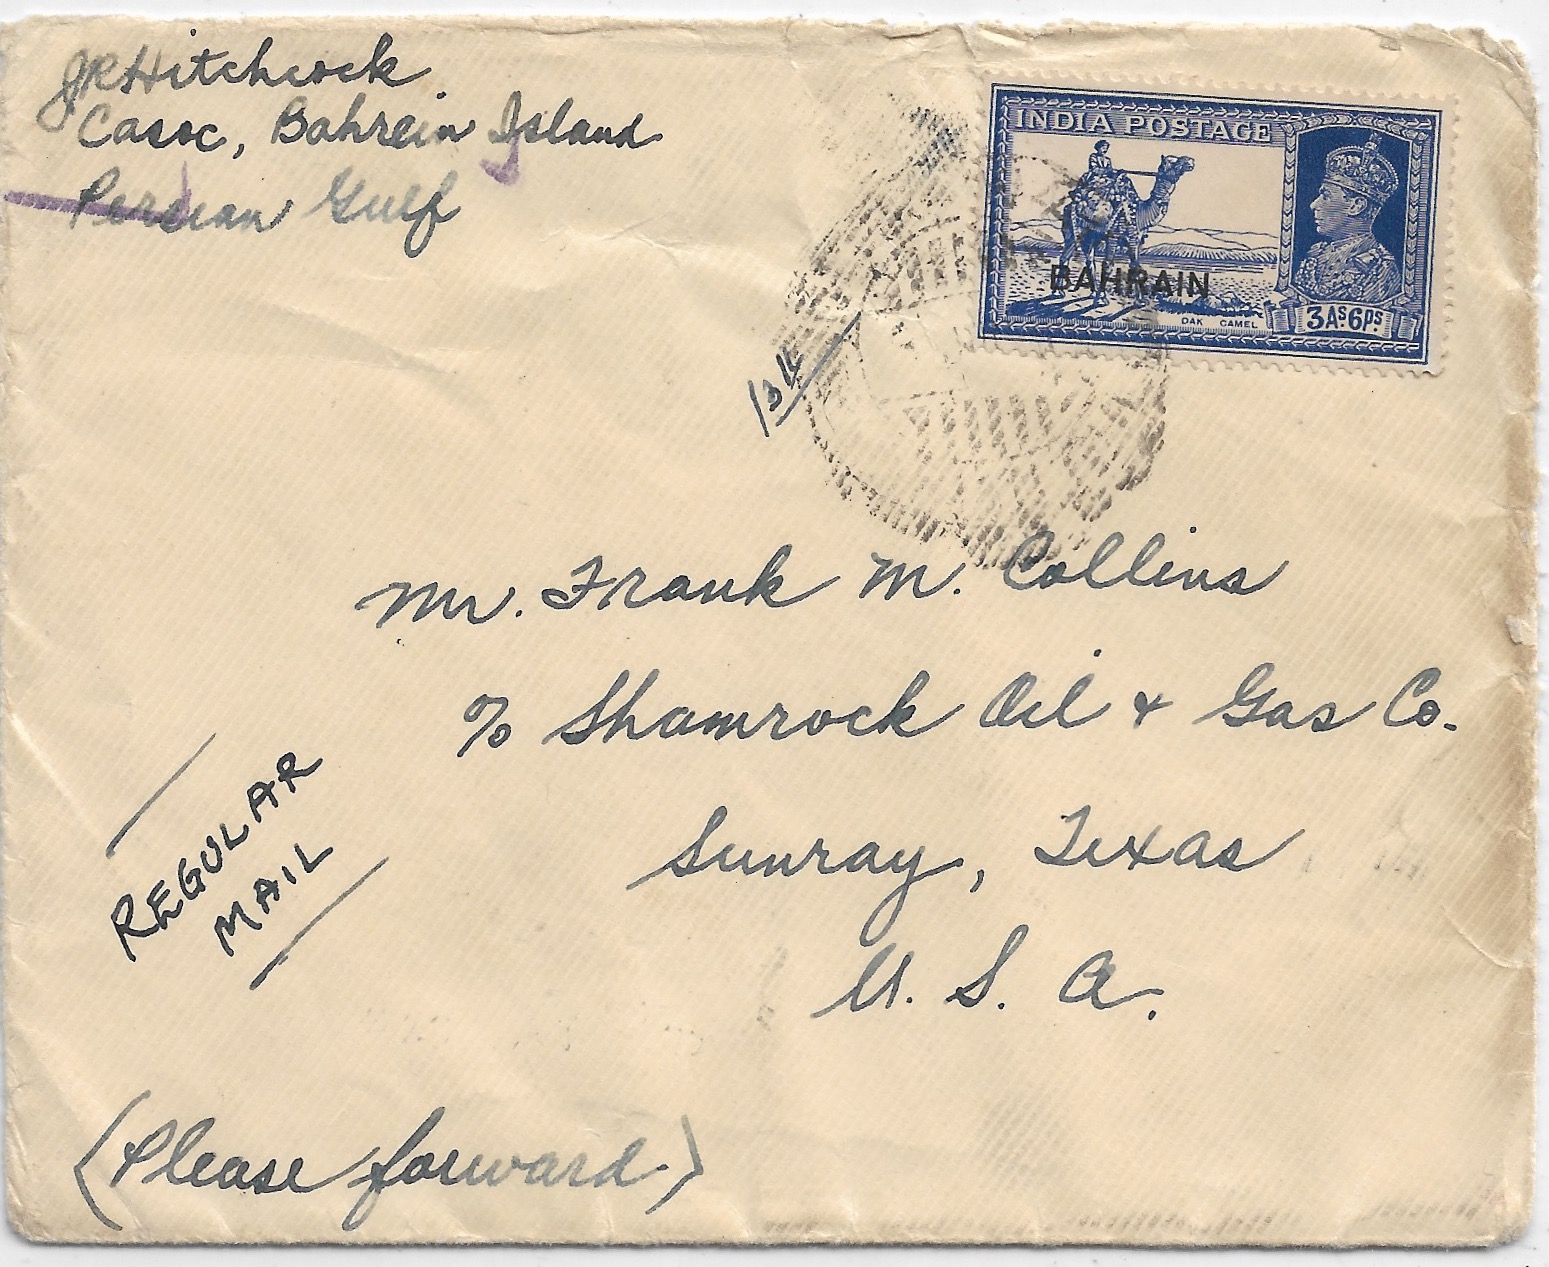 JR Hitchcock.
Casoc, Bahrein Island
Persian Gulf
INDIA POSTAGE
BAHRAIN
DAK CAMEL
3As.6ps.
Mr. Frank M. Collins
% Shamrock Oil & Gas Co.
Sunray, Texas
U. S. A.
REGULAR
MAIL
(Please forward)